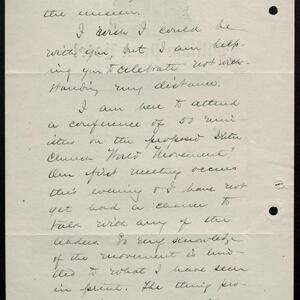 the museum.
I wish I could be
with you, but I am help-
ing you to celebrate not with-
standing my distance.
I am here to attend
a conference of 50 mini-
sters on the proposed "Inter
Church World Movement"
Our first meeting occurs
this evening & I have not
yet had a chance to
talk with any of the
leaders. So my knowledge
of the movement is lim-
ited to what I have seen
in print. The thing pro-